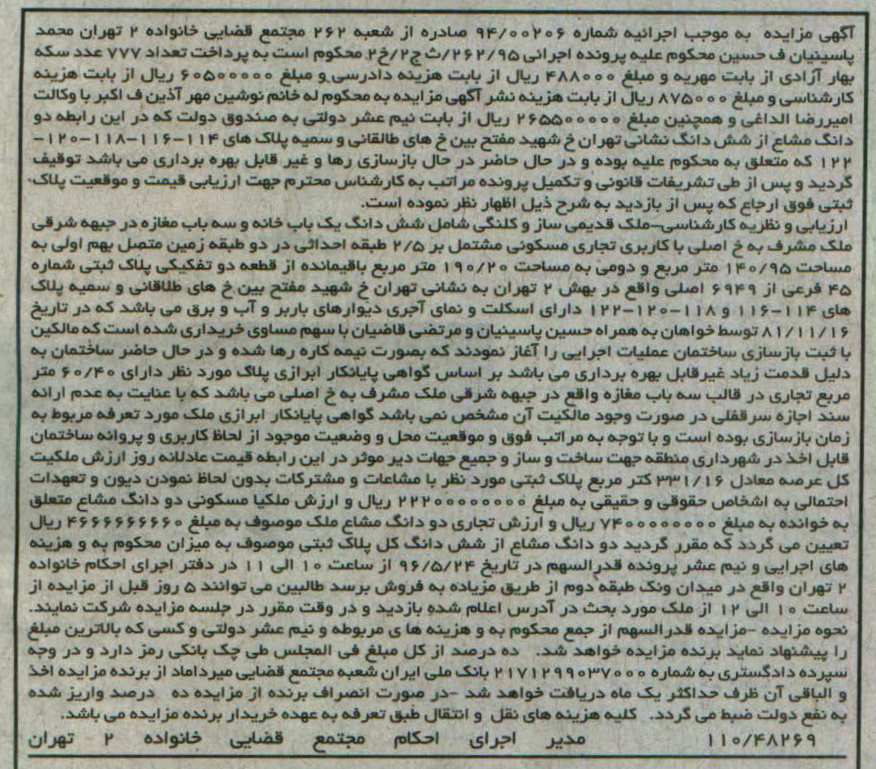 آگهی مزایده  به موجب اجرائیه شماره ۹۴/۰۰۲۰۶ صادره از شعبه ۲۶۲ مجتمع قضایی خانواده ۲ تهران محمد
پاسینیان ف حسین محکوم علیه پرونده اجرائی ۲۶۲/۹۵/ث ج۲/خ۲ محکوم است به پرداخت تعداد ۷۷۷ عدد سکه
بهار آزادی از بابت مهریه و مبلغ ۴۸۸۰۰۰ ریال از بابت هزینه دادرسی و مبلغ ۶۰۵۰۰۰۰۰ ریال از بابت هزینه
کارشناسی و مبلغ ۸۷۵۰۰۰ ریال از بابت هزینه نشر آگهی مزایده به محکوم له خانم نوشین مهر آذین ف اکبر با وکالت
امیررضا الداغی و همچنین مبلغ ۲۶۵۵۰۰۰۰۰ ریال از بابت نیم عشر دولتی به صندوق دولت که در این رابطه دو
دانگ مشاع از شش دانگ نشانی تهران خ شهید مفتح بین خ های طالقانی و سمیه پلاک های ۱۱۴-۱۱۶-۱۱۸-۱۲۰-
۱۲۲ که متعلق به محکوم علیه بوده و در حال حاضر در حال بازسازی رها و غیر قابل بهره برداری می باشد توقیف
گردید و پس از طی تشریفات قانونی و تکمیل پرونده مراتب به کارشناس محترم جهت ارزیابی قیمت و موقعیت پلاک
ثبتی فوق ارجاع که پس از بازدید به شرح ذیل اظهار نظر نموده است.
ارزیابی و نظریه کارشناسی-ملک قدیمی ساز و کلنگی شامل شش دانگ یک باب خانه و سه باب مغازه در جبهه شرقی
ملک مشرف به خ اصلی با کاربری تجاری مسکونی مشتمل بر ۲/۵ طبقه احداثی در دو طبقه زمین متصل بهم اولی به
مساحت ۱۴۰/۹۵ متر مربع و دومی به مساحت ۱۹۰/۲۰ متر مربع باقیمانده از قطعه دو تفکیکی پلاک ثبتی شماره
۴۵ فرعی از ۶۹۴۹ اصلی واقع در بهش ۲ تهران به نشانی تهران خ شهید مفتح بین خ های طلاقانی و سمیه پلاک
های ۱۱۴-۱۱۶ و ۱۱۸-۱۲۰-۱۲۲ دارای اسکلت و نمای آجری دیوارهای باربر و آب و برق می باشد که در تاریخ
۸۱/۱۱/۱۶ توسط خواهان به همراه حسین پاسینیان و مرتضی قاضیان با سهم مساوی خریداری شده است که مالکین
با ثبت بازسازی ساختمان عملیات اجرایی را آغاز نمودند که بصورت نیمه کاره رها شده و در حال حاضر ساختمان به
دلیل قدمت زیاد غیرقابل بهره برداری می باشد بر اساس گواهی پایانکار ابرازی پلاک مورد نظر دارای ۶۰/۴۰ متر
مربع تجاری در قالب سه باب مغازه واقع در جبهه شرقی ملک مشرف به خ اصلی می باشد که با عنایت به عدم ارائه
سند اجازه سرقفلی در صورت وجود مالکیت آن مشخص نمی باشد گواهی پایانکار ابرازی ملک مورد تعرفه مربوط به
زمان بازسازی بوده است و با توجه به مراتب فوق و موقعیت محل و وضعیت موجود از لحاظ کاربری و پروانه ساختمان
قابل اخذ در شهرداری منطقه جهت ساخت و ساز و جمیع جهات دیر موثر در این رابطه قیمت عادلانه روز ارزش ملکیت
کل عرصه معادل ۳۳۱/۱۶ کتر مربع پلاک ثبتی مورد نظر با مشاعات و مشترکات بدون لحاظ نمودن دیون و تعهدات
احتمالی به اشخاص حقوقی و حقیقی به مبلغ ۲۲۲۰۰۰۰۰۰۰۰ ریال و ارزش ملکیا مسکونی دو دانگ مشاع متعلق
به خوانده به مبلغ ۷۴۰۰۰۰۰۰۰۰۰ ریال و ارزش تجاری دو دانگ مشاع ملک موصوف به مبلغ ۴۶۶۶۶۶۶۶۶۶۰ ریال
تعیین می گردد که مقرر گردید دو دانگ مشاع از شش دانگ کل پلاک ثبتی موصوف به میزان محکوم به و هزینه
های اجرایی و نیم عشر پرونده قدرالسهم در تاریخ ۹۶/۵/۲۴ از ساعت ۱۰ الی ۱۱ در دفتر اجرای احکام خانواده
۲ تهران واقع در میدان ونک طبقه دوم از طریق مزیاده به فروش برسد طالبین می توانند ۵ روز قبل از مزایده از
ساعت ۱۰ الی ۱۲ از ملک مورد بحث در آدرس اعلام شده بازدید و در وقت مقرر در جلسه مزایده شرکت نمایند.
نحوه مزایده -مزایده قدرالسهم از جمع محکوم به و هزینه ها ی مربوطه و نیم عشر دولتی و کسی که بالاترین مبلغ
را پیشنهاد نماید برنده مزایده خواهد شد.  ده درصد از کل مبلغ فی المجلس طی چک بانکی رمز دارد و در وجه
سپرده دادگستری به شماره ۲۱۷۱۲۹۹۰۳۷۰۰۰ بانک ملی ایران شعبه مجتمع قضایی میرداماد از برنده مزایده اخذ
و الباقی آن ظرف حداکثر یک ماه دریافت خواهد شد -در صورت انصراف برنده از مزایده ده  درصد واریز شده
به نفع دولت ضبط می گردد.  کلیه هزینه های نقل و انتقال طبق تعرفه به عهده خریدار برنده مزایده می باشد.
۱۱۰/۴۸۲۶۹ مدیر اجرای احکام مجتمع قضایی خانواده ۲ تهران